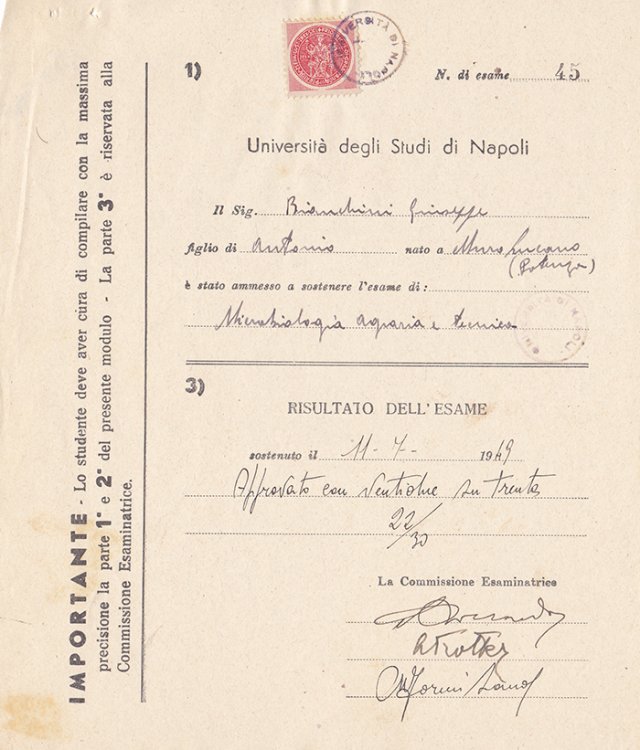 IMPORTANTE - Lo studente deve aver cura di compilare con la massima
precisione la parte 1ª e 2ª del presente modulo - La parte 3ª è riservata alla
Commissione Esaminatrice.
UNIVERSITÀ DI NAPOLI
1)
N. di esame 45
Università degli Studi di Napoli
Il Sig. Bianchini Giuseppe
figlio di Antonio nato a Muro Lucano
(Potenza)
è stato ammesso a sostenere l'esame di:
Microbiologia agraria e tecnica
3)
RISULTATO DELL'ESAME
sostenuto il 11-7- 1949
Approvato con ventidue su trenta
22/30
La Commissione Esaminatrice